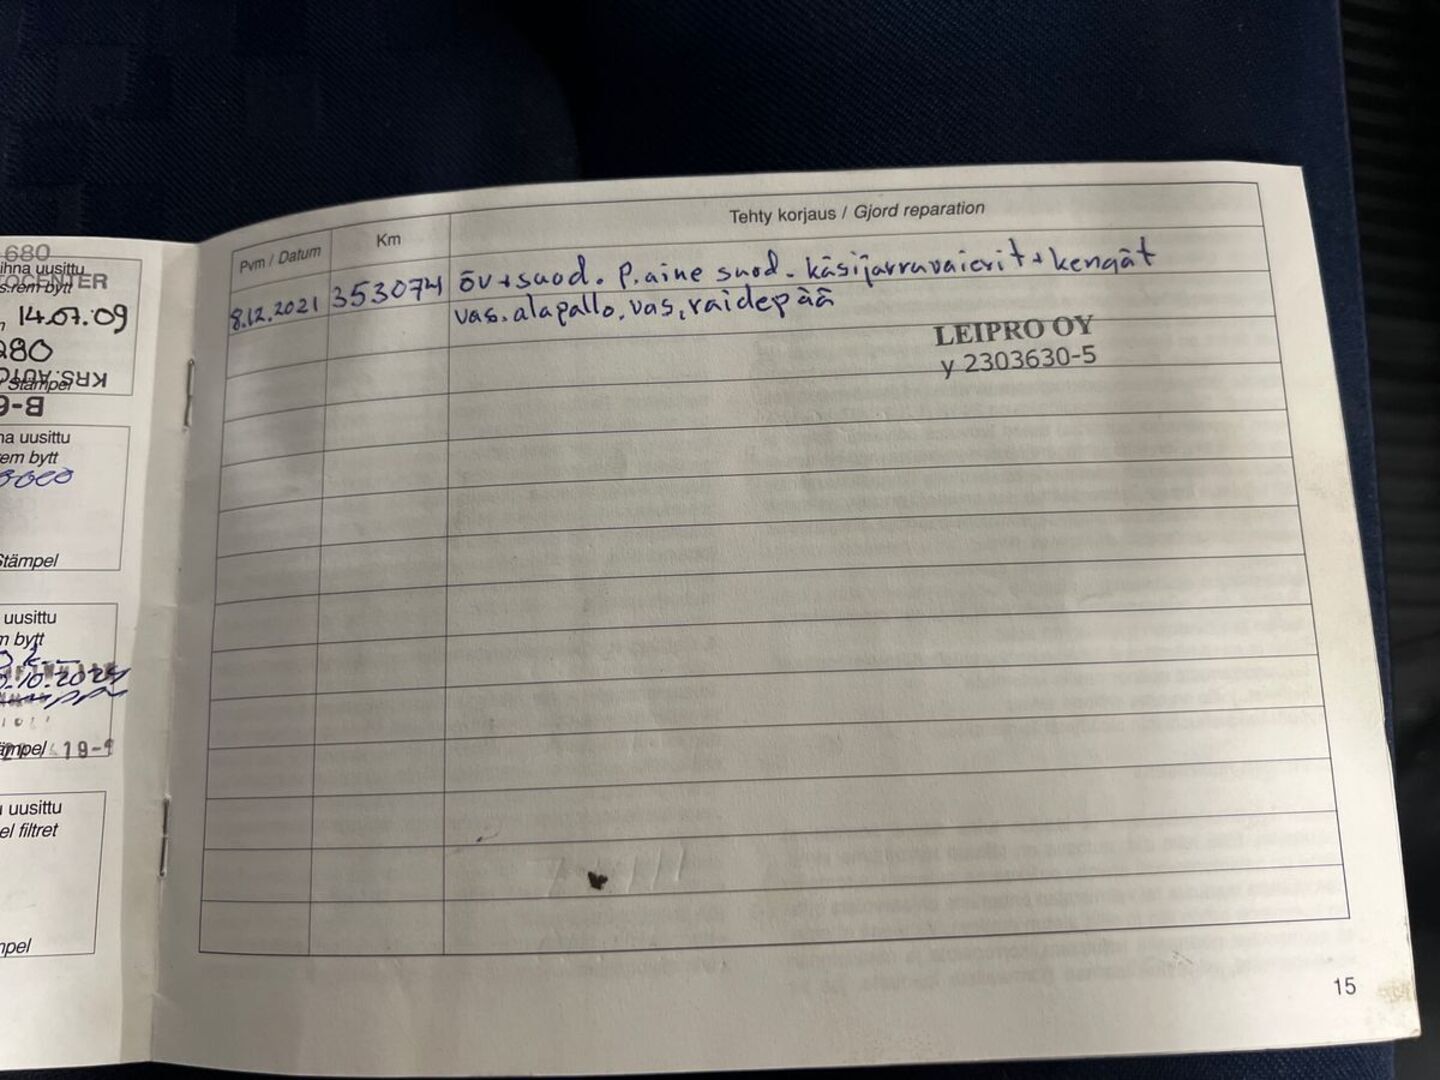 680
ihna uusittu
s.rem bytt
14.07.09
280
Stämpel
B-6
na uusittu
em bytt
Stämpel
uusittu
m bytt
10.2024
19-1
uusittu
el filtret
mpel
Pvm / Datum
Km
Tehty korjaus / Gjord reparation
8.12.2021 353074 öv+suod. P.aine suod. käsijarruvaierit + kengät
vas. alapallo. vas. raidepää
LEIPRO OY
y 2303630-5
15